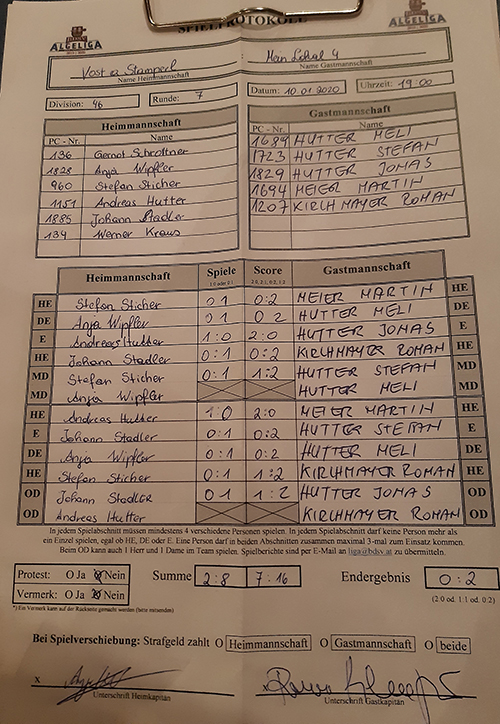 ALGELIGA SPIELPROTOKOLL ALGELIGA
Vost a Stamperl Mein Lokal 4
Name Heimmannschaft Name Gastmannschaft
Division: 46 Runde: 7 Datum: 10.01.2020 Uhrzeit: 19:00
Heimmannschaft Gastmannschaft
PC - Nr. Name PC - Nr. Name
136 Gernot Schrottner 1689 HUTTER MELI
1828 Anja Wipfler 1723 HUTTER STEFAN
960 Stefan Sticher 1829 HUTTER JONAS
1151 Andreas Hutter 1694 MEIER MARTIN
1885 Johann Stadler 1207 KIRCHMAYER ROMAN
134 Werner Kraus
Heimmannschaft Spiele Score Gastmannschaft
1:0 oder 0:1 2:0, 2:1, 0:2, 1:2
HE Stefan Sticher 0 1 0:2 MEIER MARTIN HE
DE Anja Wipfler 0 1 0 2 HUTTER MELI DE
E Andreas Hutter 1:0 2:0 HUTTER JONAS E
HE Johann Stadler 0:1 0:2 KIRCHMAYER ROMAN HE
MD Stefan Sticher 0:1 1:2 HUTTER STEFAN MD
MD Anja Wipfler HUTTER MELI MD
HE Andreas Hutter 1:0 2:0 MEIER MARTIN HE
E Johann Stadler 0:1 0:2 HUTTER STEFAN E
DE Anja Wipfler 0:1 0:2 HUTTER MELI DE
HE Stefan Sticher 0:1 1:2 KIRCHMAYER ROMAN HE
OD Johann Stadler 0 1 1:2 HUTTER JONAS OD
OD Andreas Hutter KIRCHMAYER ROMAN OD
In jedem Spielabschnitt müssen mindestens 4 verschiedene Personen spielen. In jedem Spielabschnitt darf keine Person mehr als
ein Einzel spielen, egal ob HE, DE oder E. Eine Person darf in beiden Abschnitten zusammen maximal 3-mal zum Einsatz kommen.
Beim OD kann auch 1 Herr und 1 Dame im Team spielen. Spielberichte sind per E-Mail an liga@bdsv.at zu übermitteln.
Protest: O Ja O Nein Summe 2:8 7:16 Endergebnis 0:2
Vermerk: O Ja O Nein (2:0 od. 1:1 od. 0:2)
*) Ein Vermerk kann auf der Rückseite gemacht werden (bitte ankreuzen)
Bei Spielverschiebung: Strafgeld zahlt O Heimmannschaft O Gastmannschaft O beide
x x
Unterschrift Heimkapitän Unterschrift Gastkapitän